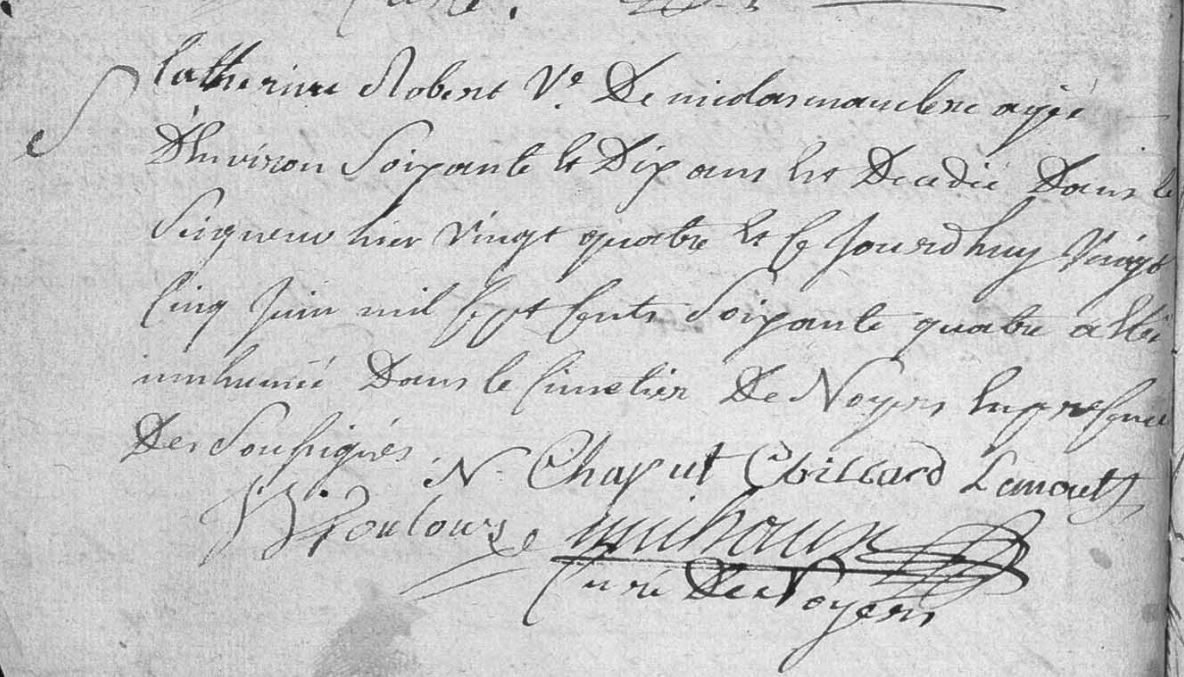 Catherine Robert Ve. De nicolas maucler agée
D'Environ Soixante et Dix ans Est Decedée Dans le
Seigneur hier Vingt quatre et ce Jourdhuy Vingt
Cinq Juin mil Sept Cents Soixante quatre a Eté
inhumée Dans le Cimetier De Noyers En presence
Des Soussignés. N. Chaput C billard Lanoult
Toulouze michoux
Curé De Noyers